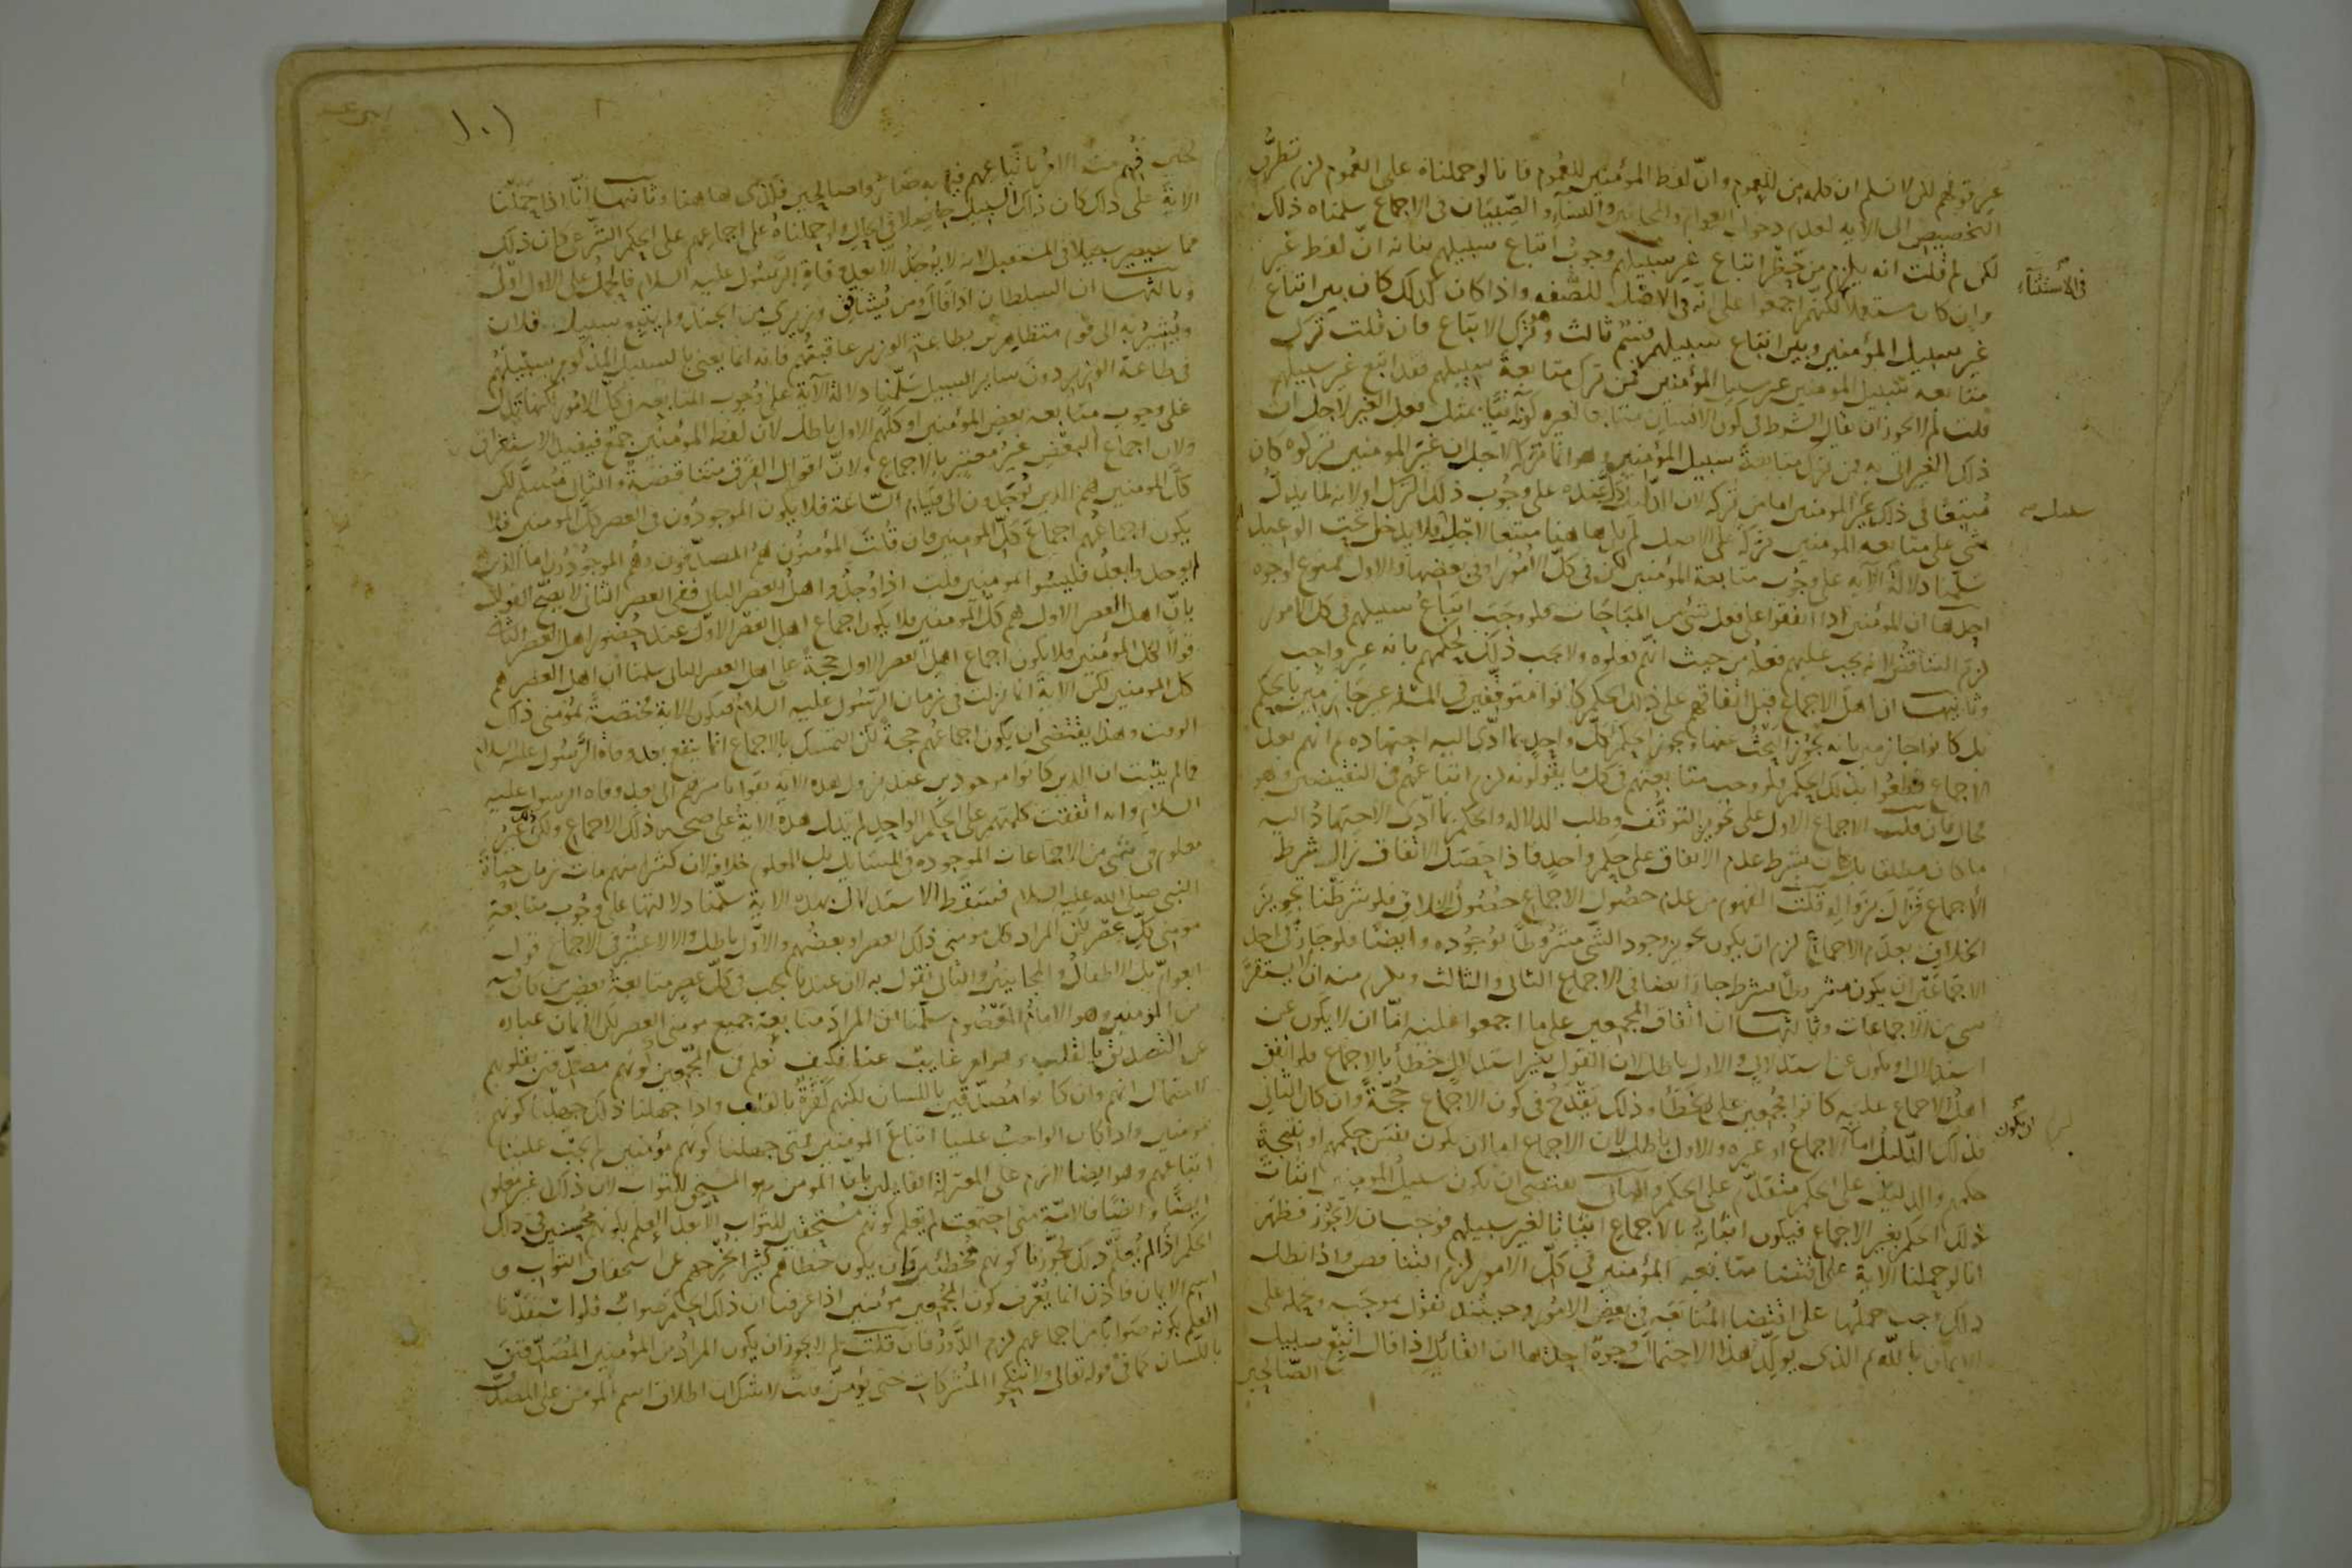 عن قولهم لكن لا نسلم ان كلمة من للعموم وانّ لفظ المؤمنين للعموم فانا لو حملناه على العموم لزم تطرّق
التخصيص الى الآية لعدم دخول العوام والمجانين والنساء والصّبيان في الاجماع سلمناه ذلك
لكن لم قلت انه يلزم من حظر اتباع غير سبيلهم وجوب اتباع سبيلهم بيانه انّ لفظ غير
في الأستثناء
وان كان مستعملا لكنهم اجمعوا على انّه في الاصل للصّفه واذا كان كذلك كان بين اتباع
غير سبيل المؤمنين وبين اتباع سبيلهم قسمٌ ثالث وهو ترك الاتباع فان قلت ترك
متابعه سبيل المومنين غير سبيل المؤمنين فمن ترك متابعةَ سبيلهم فقد اتبع غير سبيلهم
قلت لم لا يجوز ان يقال الشرط في كون الانسان متابعا لغيره كونه آتيًا بمثل فعل الغير لاجل ان
ذلك الغير اتى به فمن ترك متابعةَ سبيل المؤمنين وهو انما تركه لاجل ان غير المومنين تركوه كان
متبعًا في ذلك غير المومنين اما من تركه لان الدليل دلّ عنده على وجُوب ذلك الترك او لانه لما لم يدلّ
شئ على متابعه المومنين تركه على الاصل لم يكن هاهنا متبعا لاحدٍ فلا يدخل تحت الوعيد
سلّمنا دلالة الآية على وجُوب متابعة المؤمنين لكن في كلّ الامُور او في بعضها والاول ممنوع لوجوه
احدها ان المؤمنين اذا اتفقوا على فعل شئ من المبَاحَات فلو وجَبَ اتباعُ سبيلهم في كل الامور
لزم التناقض لانه يجب عليهم فعلُه من حيث انّهم فعلوه ولا يجب ذلك لحكمهم بانه غير واجب
وثانيها ان اهل الاجماع قبل اتفاقهم على ذلك الحكم كانوا متوقفين في المسئلة غير جازمين بالحكم
بل كانوا جازمين بانه يجوز البَحثُ عنها ويجوز الحكم لكلّ واحدٍ بما ادّى اليه اجتهاده ثم انهم بعد
الاجماع قطعُوا بذلك الحكم فلو وجب متابعتهم في كل ما يقولونه لزم اتباعهُم في النقيضين وهو
محال فان قلت الاجماع الاول على تجويز التوقّف وطلب الدلاله والحكم بما ادّى الاجتهادُ اليه
ما كان مطلقا بل كان بشرط عدم الاتفاق على حكم واحدٍ فاذا حَصَل الاتفاق زال شرط
الاجماع فزال بزوَاله قلت المفهوم من عدم حصُول الاجماع حصُول الخلاف فلو شرَطنا تجويز
الخلافِ بعدَم الاجماع لزم ان يكون تجويز وجود الشّئ مشرُوطًا بوجُوده وايضًا فلو جَاز في احد
الاجمَاعَين ان يكون مشروطًا بشرط جاز ايضا في الاجماع الثاني والثالث ويلزم منه ان لا يستقرّ
شئ من الاجماعات وثالثها ان اتفاق المجمعين على ما اجمعوا عليه امّا ان لا يكون عن
استدلال او يكون عن استدلالٍ والاول باطل لان القول بغير استدلالٍ خطأ بالاجماع فلو اتفق
اهل الاجماع عليه كانوا مجمعين على الخطأ وذلك يقدحُ في كون الاجماع حُجّةً وان كان الثاني
ان يكون
فذلك الدليلُ اما الاجماعُ او غيره والاول باطل لان الاجماع اما ان يكون نفسَ حكمهم او نتيجة
حكمهم والدليل على الحكم متقدّم على الحكم والثاني يقتضي ان يكون سبيل المومنين اثبات
ذلك الحكم بغير الاجماع فيكون اثباته بالاجماعِ اتباعًا لغير سبيلهم فوجب ان لا يجوز فظهَر
انا لو حملنا الاية على اقتضاء متابعهِ المؤمنين في كلّ الامور لزم التناقض واذا بطل
ذلك وجب حملُها على اقتضاء المُتابعَه في بعضِ الامُور وحينئذ نقول بموجَبه ونحمله على
الايمان بالله ثم الذي يولّد هذا الاحتمال وجوهٌ احدها ان القائل اذا قال اتبعْ سبيل
الصّالحين
١٠١
فُهم منه الامرُ باتباعهم فيما به صَاروا صالحين فكذى هاهنا وثانيها انّا اذا حَمَلنا
الاية على ذلك كان ذلك السبيل حاصلا في الحال ولو حملناهُ على اجماعهم على الحكم الشّرعي كان ذلك
مما سيصير سبيلا في المستقبل لانه لا يُوجَدُ الا بعد وفاة الرّسُول عليه السلام فالحمل على الاول اولى
وثالثها ان السلطان اذا قال ومن يُشاقِق وزيري من الجند ولم يتبع سبيل فلان
ويُشيرُ به الى قوم متظاهرين بطاعة الوزير عاقبتُهم فانه انما يعني بالسبيل المذكور سبيلهُم
في طاعة الوزير دون ساير السبيل سَلّمنا دلالة الآية على وُجوب المتابعه في كل الامُور لكنها تدل
على وجوب متابعه بعض المؤمنين او كلّهم الاول باطل لان لفظ المؤمنين جمعٌ فيفيدُ الاستغراق
ولان اجماعَ البعضِ غيرُ معتبر بالاجماع ولانّ اقوال الفِرق متناقضةٌ والثاني مُسلّم لكن
كلّ المومنين هم الذين يُوجَدون الى قيام السّاعة فلا يكون الموجودُون في العصر كلّ المومنين فلا
يكون اجماعُهم اجماعَ كلّ المومنين فان قلتَ المؤمنون همُ المصدّقون وهُمُ الموجُودُون اما الذين
لم يوجدوا بعدُ فليسُوا مومنين قلت اذا وُجدُوا اهلُ العصر الثاني ففي العصر الثاني لا يصحّ القول
بانّ اهل العصر الاول هم كلّ المومنين فلا يكون اجماع اهل العصر الاوّل عند حُضور اهل العصر الثاني
قولًا لكلّ المؤمنين فلا يكون اجماع اهل العصر الاول حجةً على اهل العصر الثاني سلمنا ان اهل العصر هم
كل المومنين لكن الايةَ انما نزلت في زمان الرّسُول عليه السلامُ فتكون الايةُ مُختصّةً بمُؤمني ذلك
الوقت وهذا يقتضي ان يكون اجماعُهم حجةً لكن التمسّك بالاجماع انما ينفع بعد وفاةِ الرّسُول عليه السلام
فما لم يثبت ان الذين كانوا موجودين عند نزول هذه الايه بقوا باسرهم الى بعد وفاه الرسول عليه
السلام وانه اتفقت كلمتهم على الحكم الواحد لم تدل هذه الاية على صحه ذلك الاجماع ولكن ذلك غير
معلوم في شئ من الاجماعات الموجوده في المسَايل بل المعلوم خلافه لان كثيرا منهم مات زمان حياة
النبي صلى الله عليه السلام فسَقَط الاستدلالُ بهذه الاية سلّمنا دلالتها على وجُوب متابعةِ
مومني كلّ عصرٍ لكن المراد كل مومني ذلك العصر او بعضُهم والاوّل باطل والا لاعتُبر في الاجماع قول
العوامّ بل الاطفال والمجانينُ والثاني نقول به لان عندنا يجب في كلّ عصرٍ متابعةُ بعضٍ
من المؤمنين وهو الامامُ المعصُوم سلّمنا ان المرادَ متابعة جميع مومني العصر لكن الايمان عباره
عن التصديق بالقلب وهو امر غايبٌ عنا فكيف نعلم في المُجمعين كونَهم مصدّقين بقلوبهم
لاحتمال انهم وان كانوا مُصدّقين باللسان لكنهم كفرةٌ بالقلب واذا جهلنا ذلك جهلنا كونهم
مومنين واذا كان الواجبُ علينا اتباعَ المومنين فمتى جهلنا كونَهم مؤمنين لم يجبْ علينا
اتباعهم وهو ايضا لازم على المعتزلة القايلين بانّ المومن هو المستحق للثواب لان ذلك غير معلوم
ايضًا وايضًا فالامّة متى اجتمعت لم نعلم كونَهم مُستحقين للثواب الا بعد العلم بكونهم مُحسنين في ذلك
الحكم اذ لم يُعلَم ذلك لجوّزنا كونهم مُخطئين وان يكون خطاهم كثيرا يُخرجهم عن استحقاق الثواب و
اسم الايمان فاذن انما يُعرف كون المُجمعين مؤمنين اذا عرفنا ان ذلك الحكم صَوابٌ فلو استفَدنا
العلم بكونه صَوابًا من اجماعهم لزم الدَّورُ فان قلتَ لم لا يجوز ان يكون المرادُ من المؤمنين المُصَدّقين
باللسان كما في قوله تعالى ولا تنكحوا المُشركات حتى يؤمنّ قلتُ لا شكّ ان اطلاق اسم المُومن على المصدّق